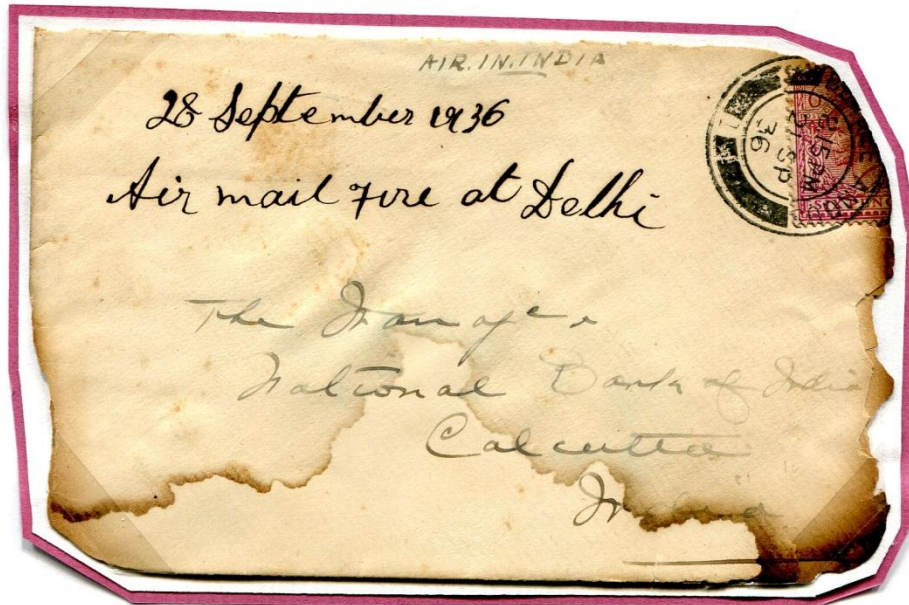 AIR.IN.INDIA
28 September 1936
Air mail Fire at Delhi
The Manager
National Bank of India
Calcutta
India
15 PM
SP
36